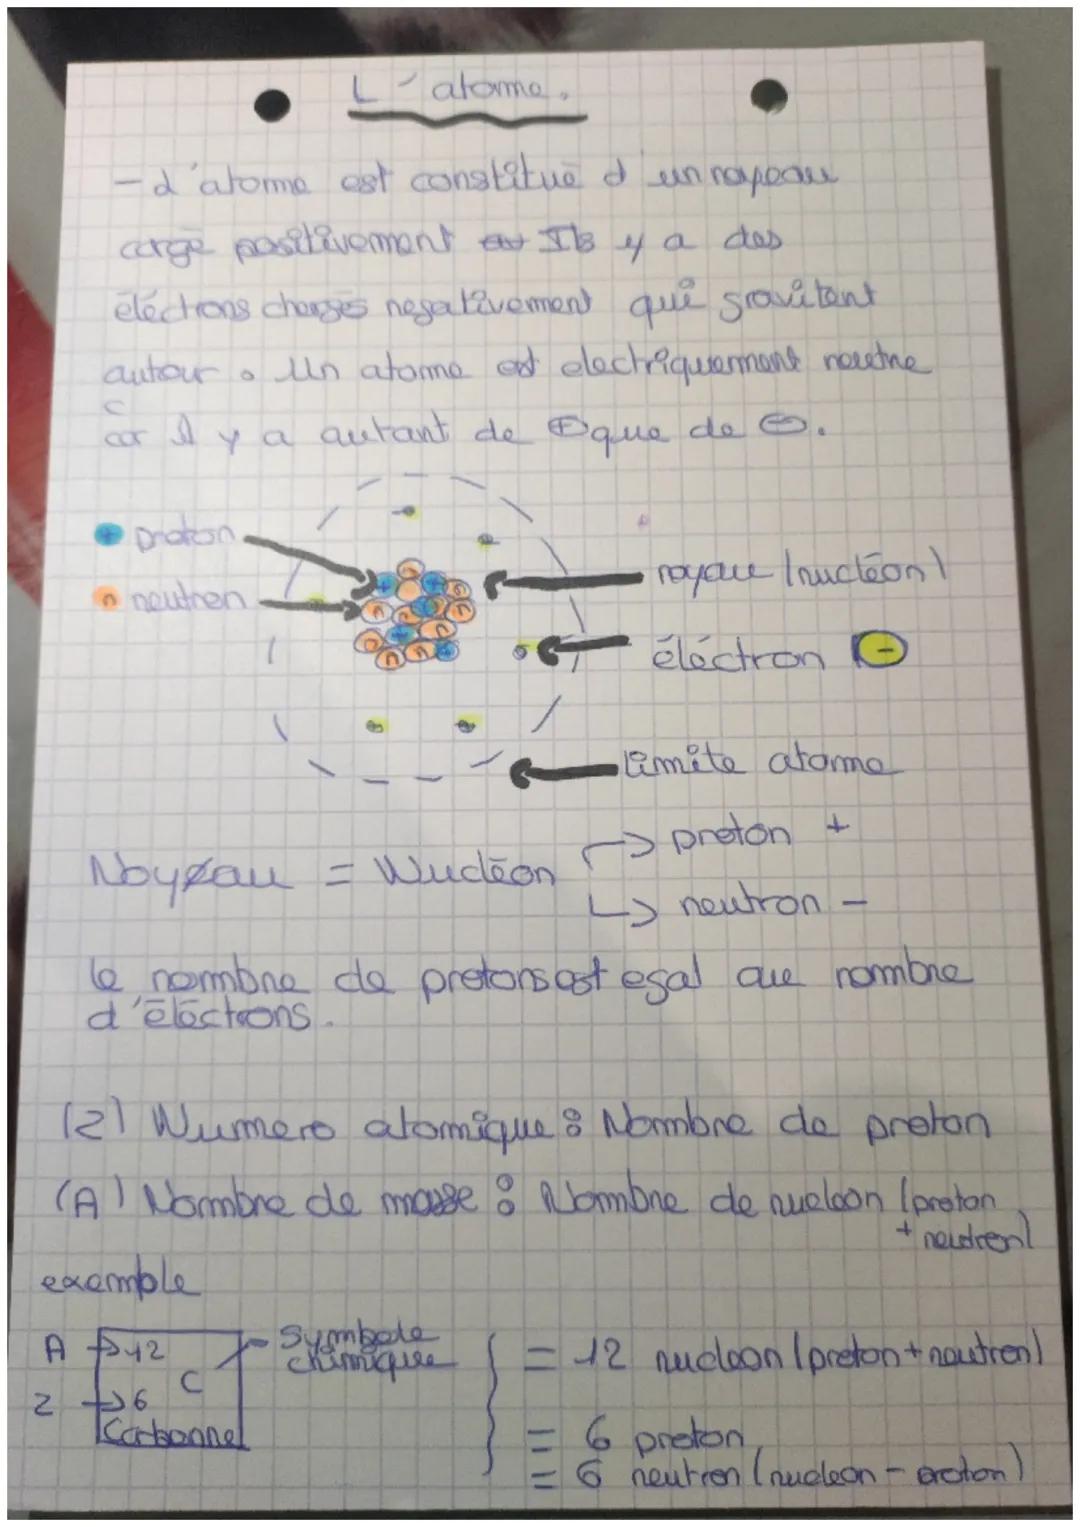 L'atome.
- L'atome est constitué d'un noyeau
cargé positivement Ils y a des
éléctrons chargés negativement qui gravitent
autour. Un atome est electriquement neutre
car il y a autant de ⊕ que de ⊖.
+ proton
n neutron
noyau (nucléon)
éléctron -
limite atome
Noyeau = Nucléon
→ proton +
→ neutron -
le nombre de protons est egal au nombre
d'éléctrons.
(Z) Numero atomique : Nombre de proton
(A) Nombre de masse : Nombre de nucleon (proton
+ neutron)
exemple
A → 12
Z → 6
C
Carbonne
Symbole
chimique
= 12 nucleon (proton + neutron)
= 6 proton
= 6 neutron (nucleon - proton)